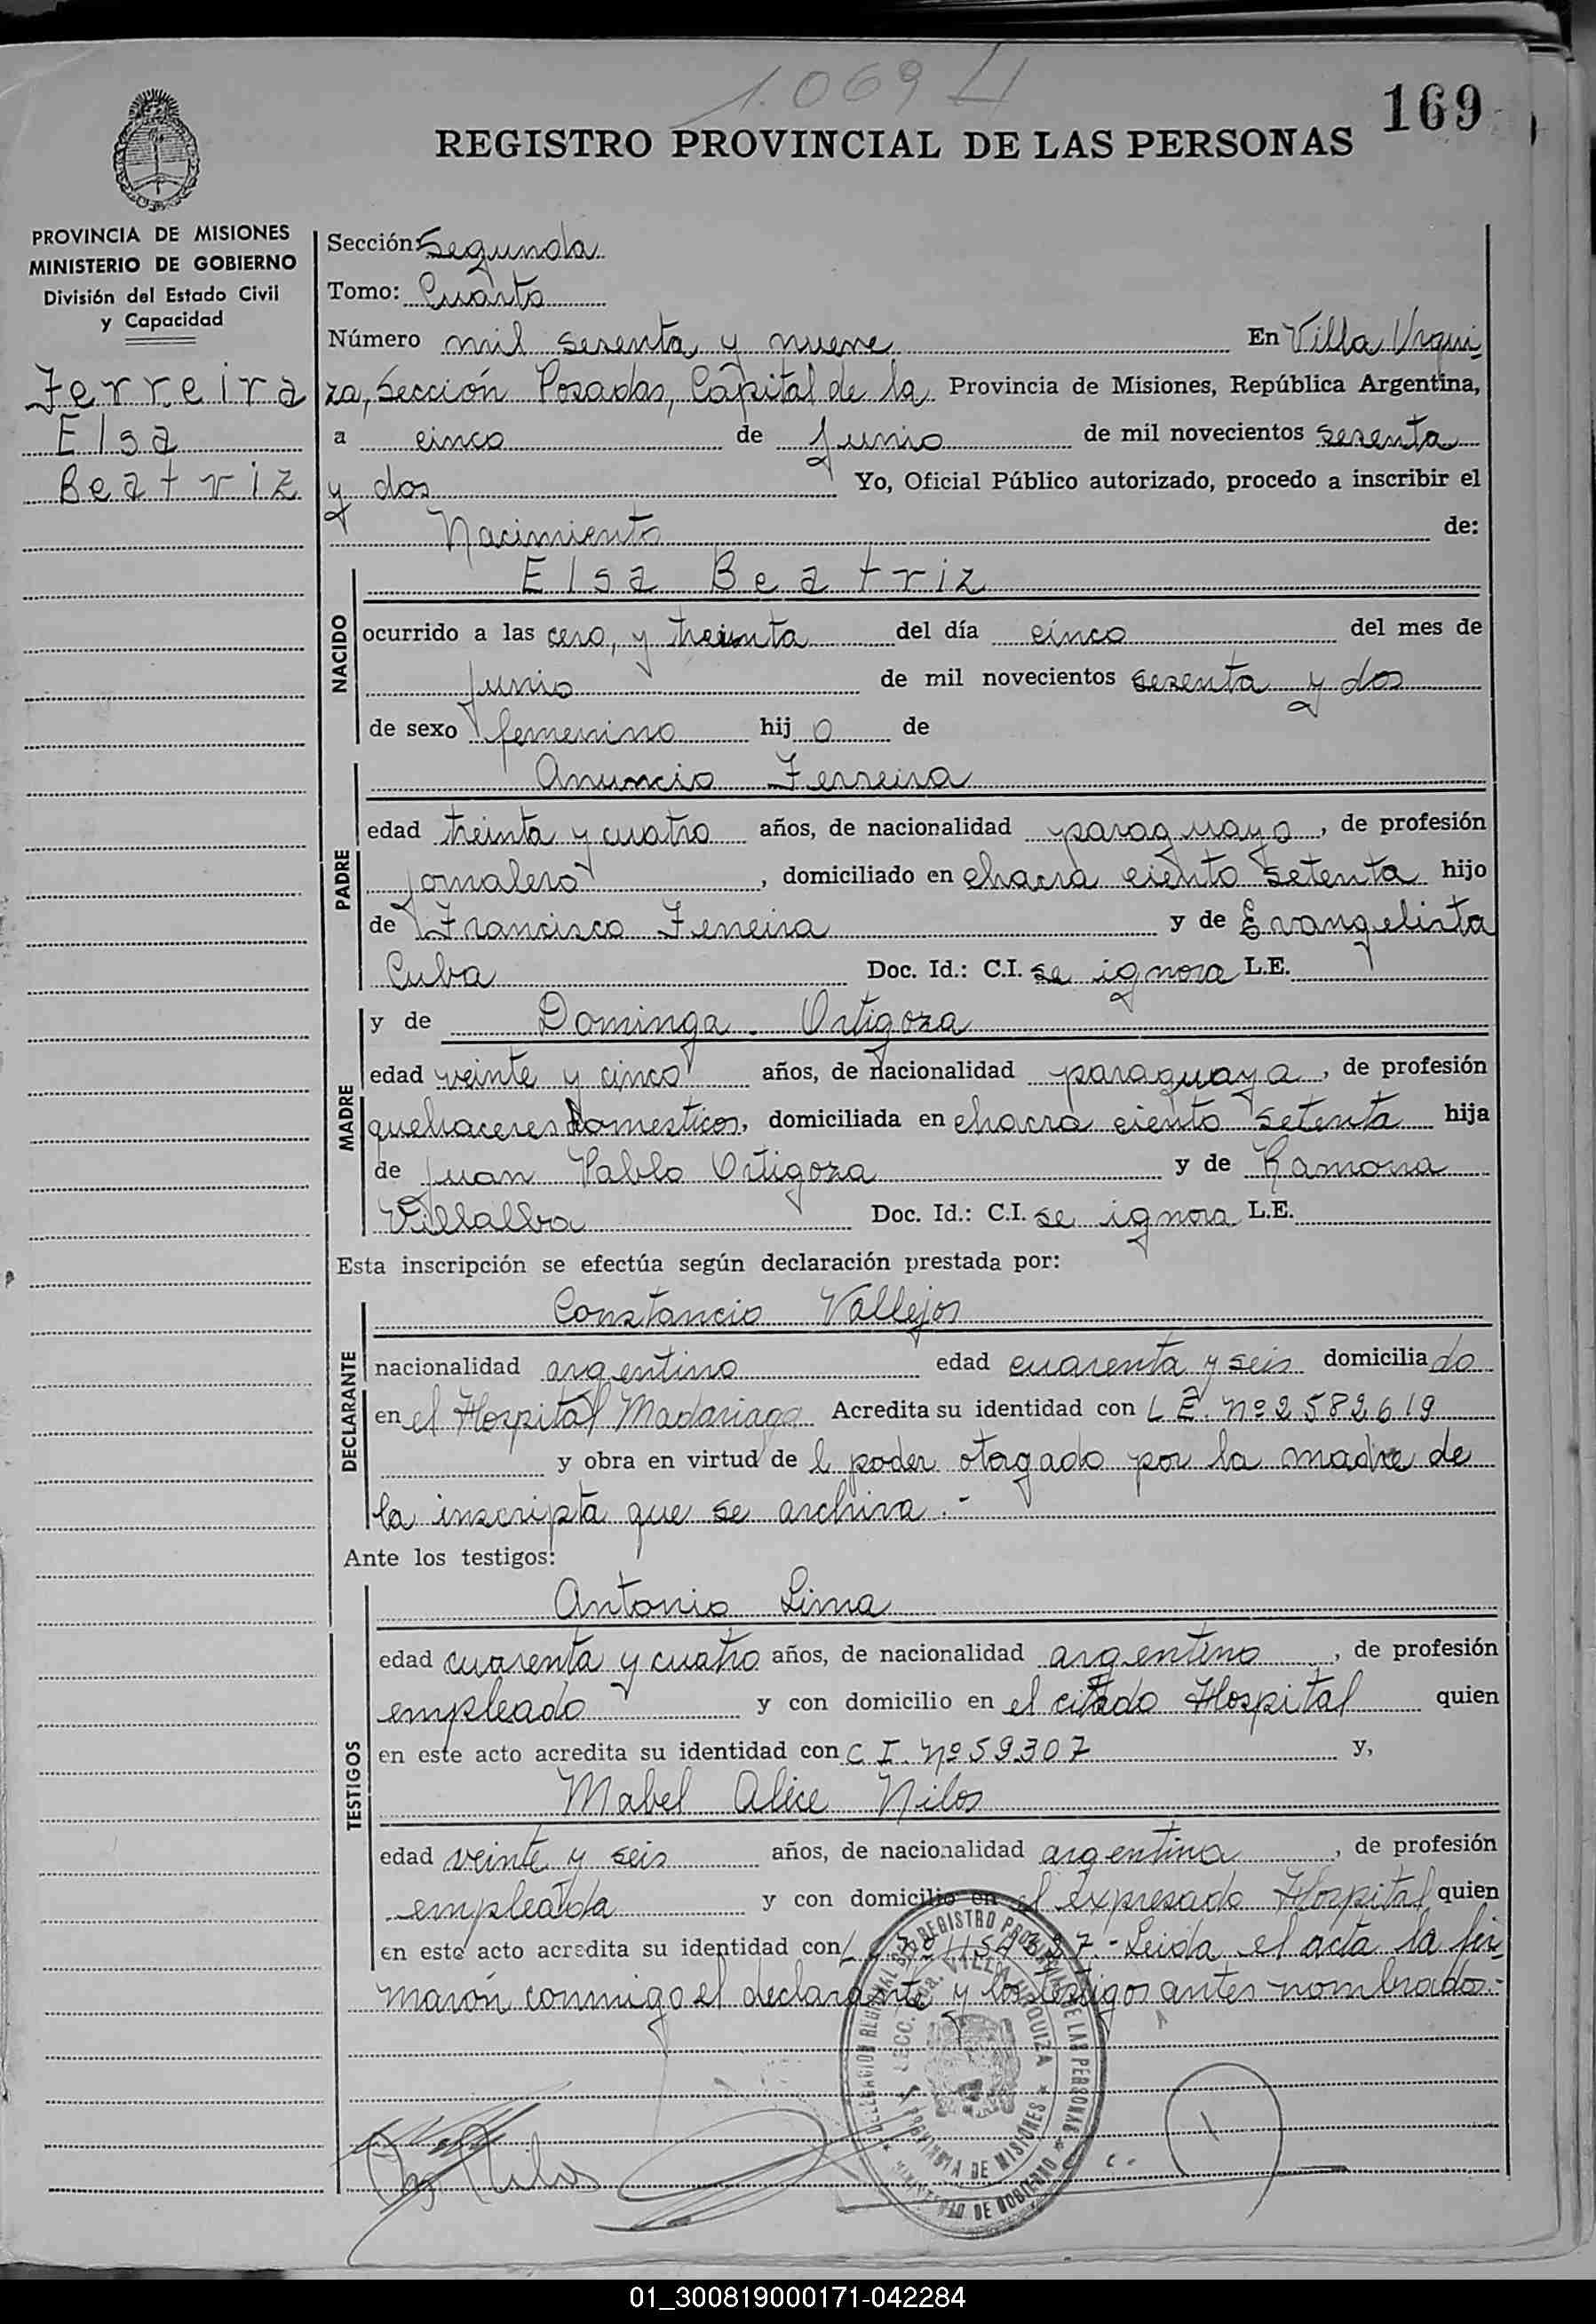 1.069
169
REGISTRO PROVINCIAL DE LAS PERSONAS
PROVINCIA DE MISIONES
MINISTERIO DE GOBIERNO
División del Estado Civil
y Capacidad
Ferreira
Elsa
Beatriz
Sección: Segunda
Tomo: Cuarto
Número mil sesenta y nueve En Villa Urqui-
za, Sección Posadas, Capital de la Provincia de Misiones, República Argentina,
a cinco de Junio de mil novecientos sesenta
y dos Yo, Oficial Público autorizado, procedo a inscribir el
Nacimiento de:
NACIDO
Elsa Beatriz
ocurrido a las cero, y treinta del día cinco del mes de
Junio de mil novecientos sesenta y dos
de sexo femenino hij a de
PADRE
Anuncio Ferreira
edad treinta y cuatro años, de nacionalidad paraguayo, de profesión
jornalero, domiciliado en chacra ciento setenta hijo
de Francisco Ferreira y de Evangelista
Cuba Doc. Id.: C.I. se ignora L.E.
MADRE
y de Dominga Ortigoza
edad veinte y cinco años, de nacionalidad paraguaya, de profesión
quehaceres domesticos, domiciliada en chacra ciento setenta hija
de Juan Pablo Ortigoza y de Ramona
Villalba Doc. Id.: C.I. se ignora L.E.
Esta inscripción se efectúa según declaración prestada por:
DECLARANTE
Constancio Vallejos
nacionalidad argentino edad cuarenta y seis domicilia do
en el Hospital Madariaga Acredita su identidad con L E. Nº 2582619
y obra en virtud de l poder otorgado por la madre de
la inscripta que se archiva.-
Ante los testigos:
TESTIGOS
Antonio Lima
edad cuarenta y cuatro años, de nacionalidad argentino, de profesión
empleado y con domicilio en el citado Hospital quien
en este acto acredita su identidad con C I. Nº 59307 y,
Mabel Alice Nilos
edad veinte y seis años, de nacionalidad argentina, de profesión
empleada y con domicilio en el expresado Hospital quien
en este acto acredita su identidad con L - Leida el acta la fir-
marón conmigo el declarante y los testigos antes nombrados.-
DELEGACION REGIONAL DEL REGISTRO PROVINCIAL DE LAS PERSONAS
SECC. 2da. VILLA URQUIZA
PROVINCIA DE MISIONES
MINISTERIO DE GOBIERNO
01_300819000171-042284